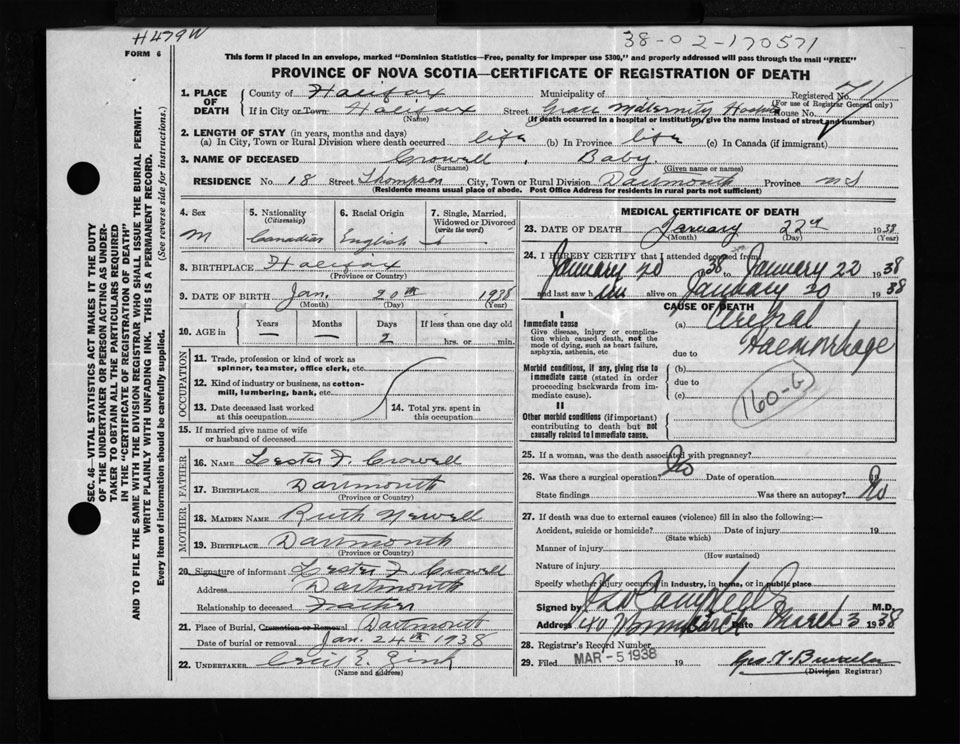 H479W
38-02-170571
FORM 6
This form if placed in an envelope, marked "Dominion Statistics—Free, penalty for improper use $300," and properly addressed will pass through the mail "FREE"
PROVINCE OF NOVA SCOTIA—CERTIFICATE OF REGISTRATION OF DEATH
1. PLACE OF DEATH
County of Halifax Municipality of Registered No. 711
(For use of Registrar General only)
If in City or Town Halifax Street Grace Maternity Hospital House No.
(Name) (If death occurred in a hospital or institution, give the name instead of street and number)
2. LENGTH OF STAY (in years, months and days)
(a) In City, Town or Rural Division where death occurred life (b) In Province life (c) In Canada (if immigrant)
3. NAME OF DECEASED Crowell, Baby.
(Surname) (Given name or names)
RESIDENCE No. 18 Street Thompson City, Town or Rural Division Dartmouth Province NS
(Residence means usual place of abode. Post Office Address for residents in rural parts not sufficient)
4. Sex
M
5. Nationality
(Citizenship)
Canadian
6. Racial Origin
English
7. Single, Married, Widowed or Divorced
(write the word)
8. BIRTHPLACE Halifax
(Province or Country)
9. DATE OF BIRTH Jan. 20th 1938
(Month) (Day) (Year)
10. AGE in
Years Months Days If less than one day old
— — 2 hrs. or min.
OCCUPATION
11. Trade, profession or kind of work as spinner, teamster, office clerk, etc.
12. Kind of industry or business, as cotton-mill, lumbering, bank, etc.
13. Date deceased last worked at this occupation
14. Total yrs. spent in this occupation
15. If married give name of wife or husband of deceased
FATHER
16. NAME Lester F. Crowell
17. BIRTHPLACE Dartmouth
(Province or Country)
MOTHER
18. MAIDEN NAME Ruth Newell
19. BIRTHPLACE Dartmouth
(Province or Country)
20. Signature of informant Lester F. Crowell
Address Dartmouth
Relationship to deceased Father
21. Place of Burial, Cremation or Removal Dartmouth
Date of burial or removal Jan. 24th 1938
22. UNDERTAKER Cecil E. Zink
(Name and address)
MEDICAL CERTIFICATE OF DEATH
23. DATE OF DEATH January 22nd 1938
(Month) (Day) (Year)
24. I HEREBY CERTIFY that I attended deceased from
January 20 38 to January 22 1938
and last saw him alive on January 20 1938
CAUSE OF DEATH
I
Immediate cause
Give disease, injury or complication which caused death, not the mode of dying, such as heart failure, asphyxia, asthenia, etc
(a) Cerebral
due to Haemorrhage
Morbid conditions, if any, giving rise to immediate cause (stated in order proceeding backwards from immediate cause).
(b)
due to
(c)
160-b
II
Other morbid conditions (if important) contributing to death but not causally related to immediate cause.
25. If a woman, was the death associated with pregnancy?
26. Was there a surgical operation? No Date of operation
State findings Was there an autopsy? No
27. If death was due to external causes (violence) fill in also the following:—
Accident, suicide or homicide? Date of injury 19
(State which)
Manner of injury
(How sustained)
Nature of injury
Specify whether injury occurred in industry, in home, or in public place
Signed by M.D.
Address Date March 3 1938
28. Registrar's Record Number
29. Filed MAR -5 1938 19
(Division Registrar)
SEC. 46—VITAL STATISTICS ACT MAKES IT THE DUTY
OF THE UNDERTAKER OR PERSON ACTING AS UNDER-
TAKER TO OBTAIN ALL THE PARTICULARS REQUIRED
IN THE "CERTIFICATE OF REGISTRATION OF DEATH"
AND TO FILE THE SAME WITH THE DIVISION REGISTRAR WHO SHALL ISSUE THE BURIAL PERMIT.
WRITE PLAINLY WITH UNFADING INK. THIS IS A PERMANENT RECORD.
Every item of information should be carefully supplied. (See reverse side for instructions.)